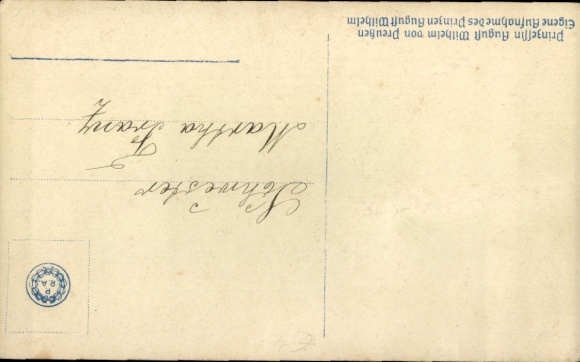 Prinzessin August Wilhelm von Preußen
Eigene Aufnahme des Prinzen August Wilhelm
Schwester
Martha Franz